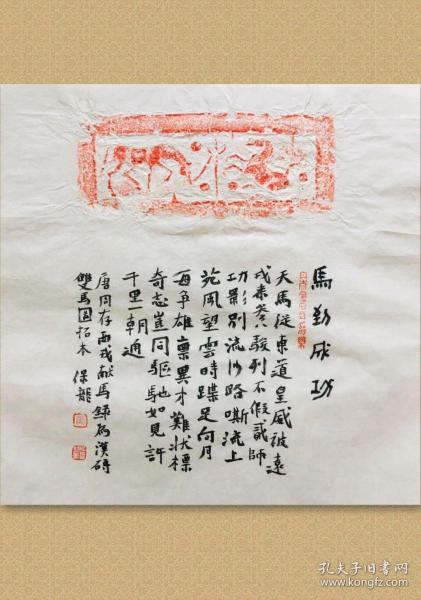 馬到成功
天馬從東道皇威被遠
戎來叅八駿列不假貳師
功影別流沙路嘶流上
苑風望雲時蹀足向月
每争雄禀異才難状標
奇志豈同驅馳如見許
千里一朝通
唐周存西戎献馬録爲漢磚
雙馬圖拓本 保龍
孔夫子旧书网
www.kongfz.com